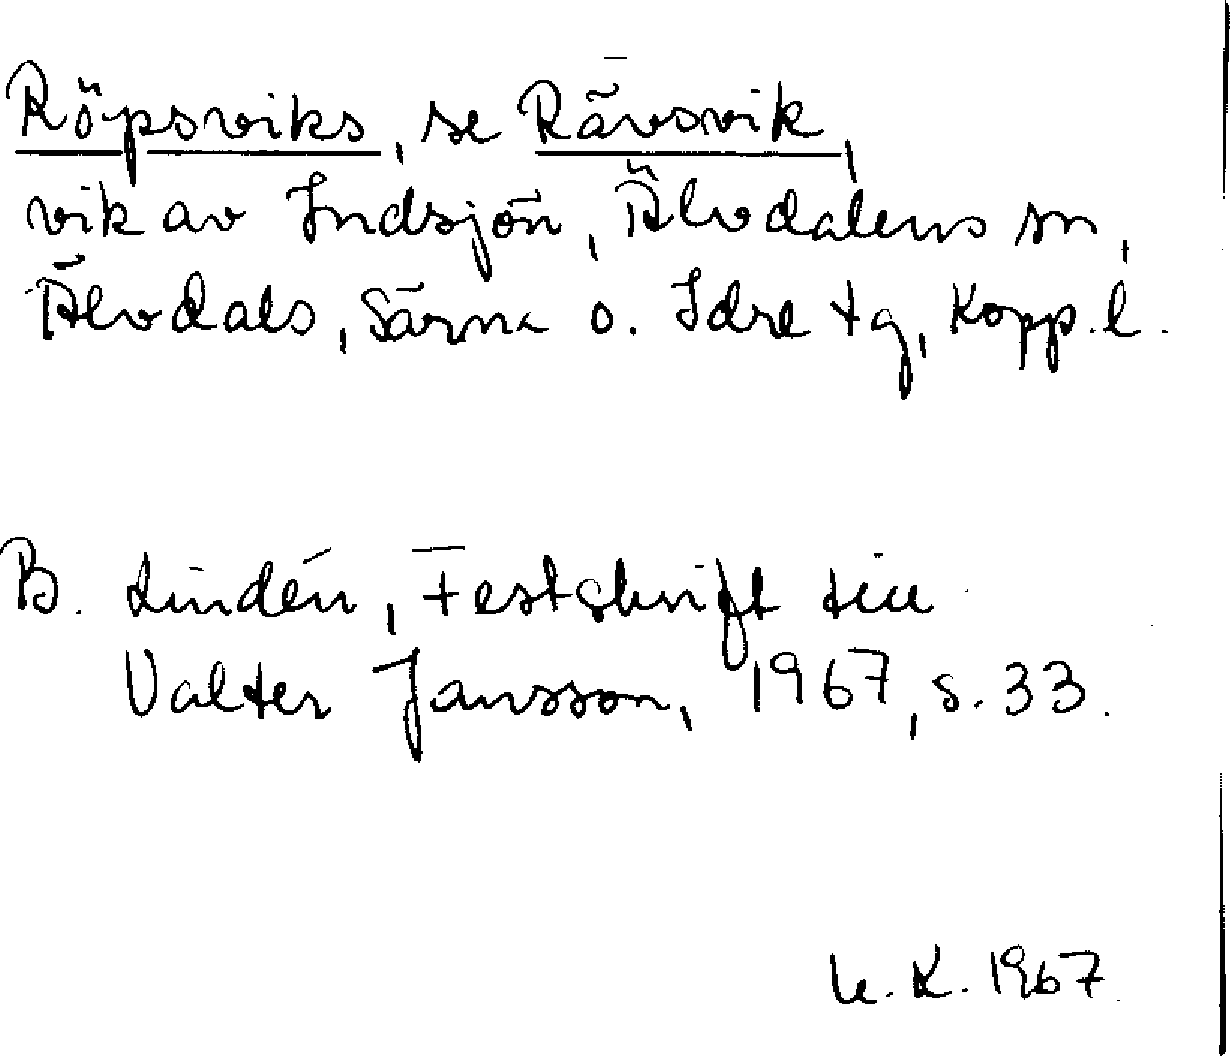 Röpsviks, se Rävsvik,
vik av Indsjön, Älvdalens sn,
Älvdals, Särna o. Idre tg, Kopp. l.
B. Lindén, Festskrift till
Valter Jansson, 1967, s. 33.
K. 1967